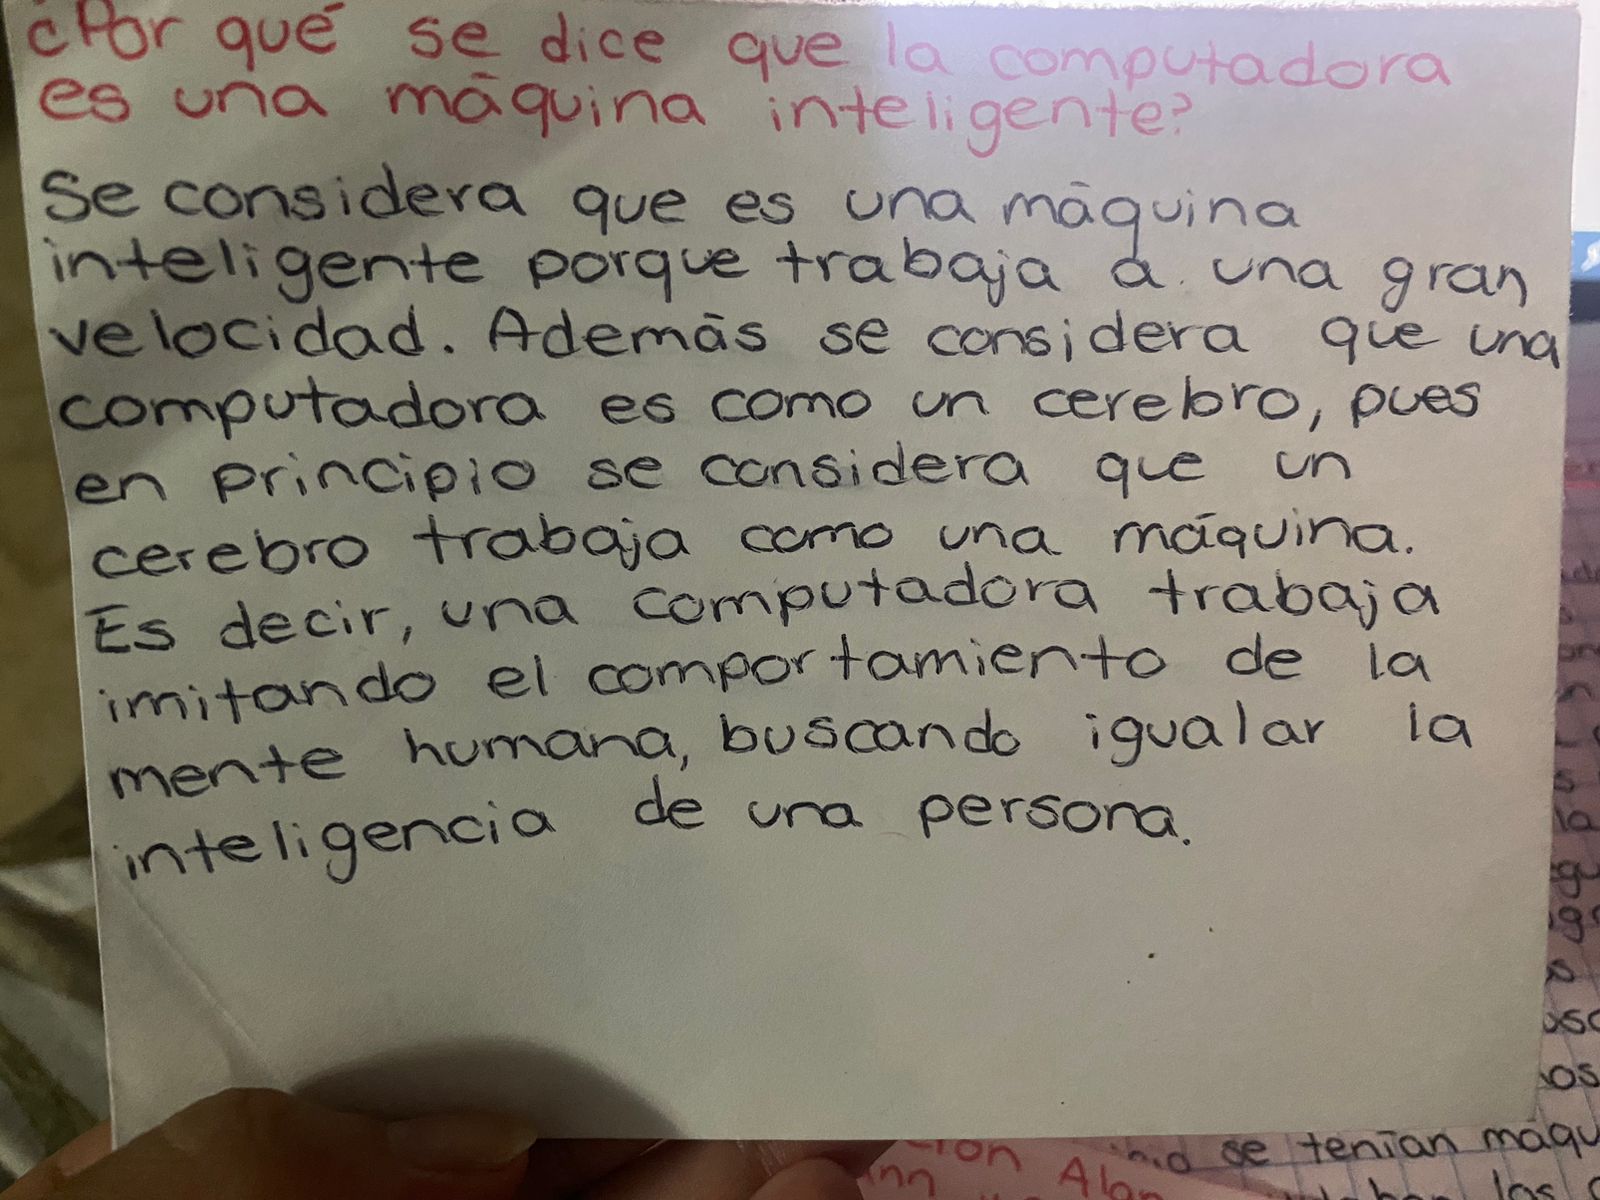 ¿Por qué se dice que la computadora
es una máquina inteligente?
Se considera que es una máquina
inteligente porque trabaja a una gran
velocidad. Además se considera que una
computadora es como un cerebro, pues
en principio se considera que un
cerebro trabaja como una máquina.
Es decir, una computadora trabaja
imitando el comportamiento de la
mente humana, buscando igualar la
inteligencia de una persona.
se tenían máqu
Alan
los